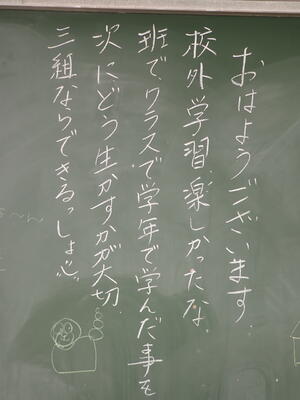 おはようございます.
校外学習.楽しかったな.
班で,クラスで学年で学んだ事を
次にどう生かすかが大切.
三組ならできるっしょ